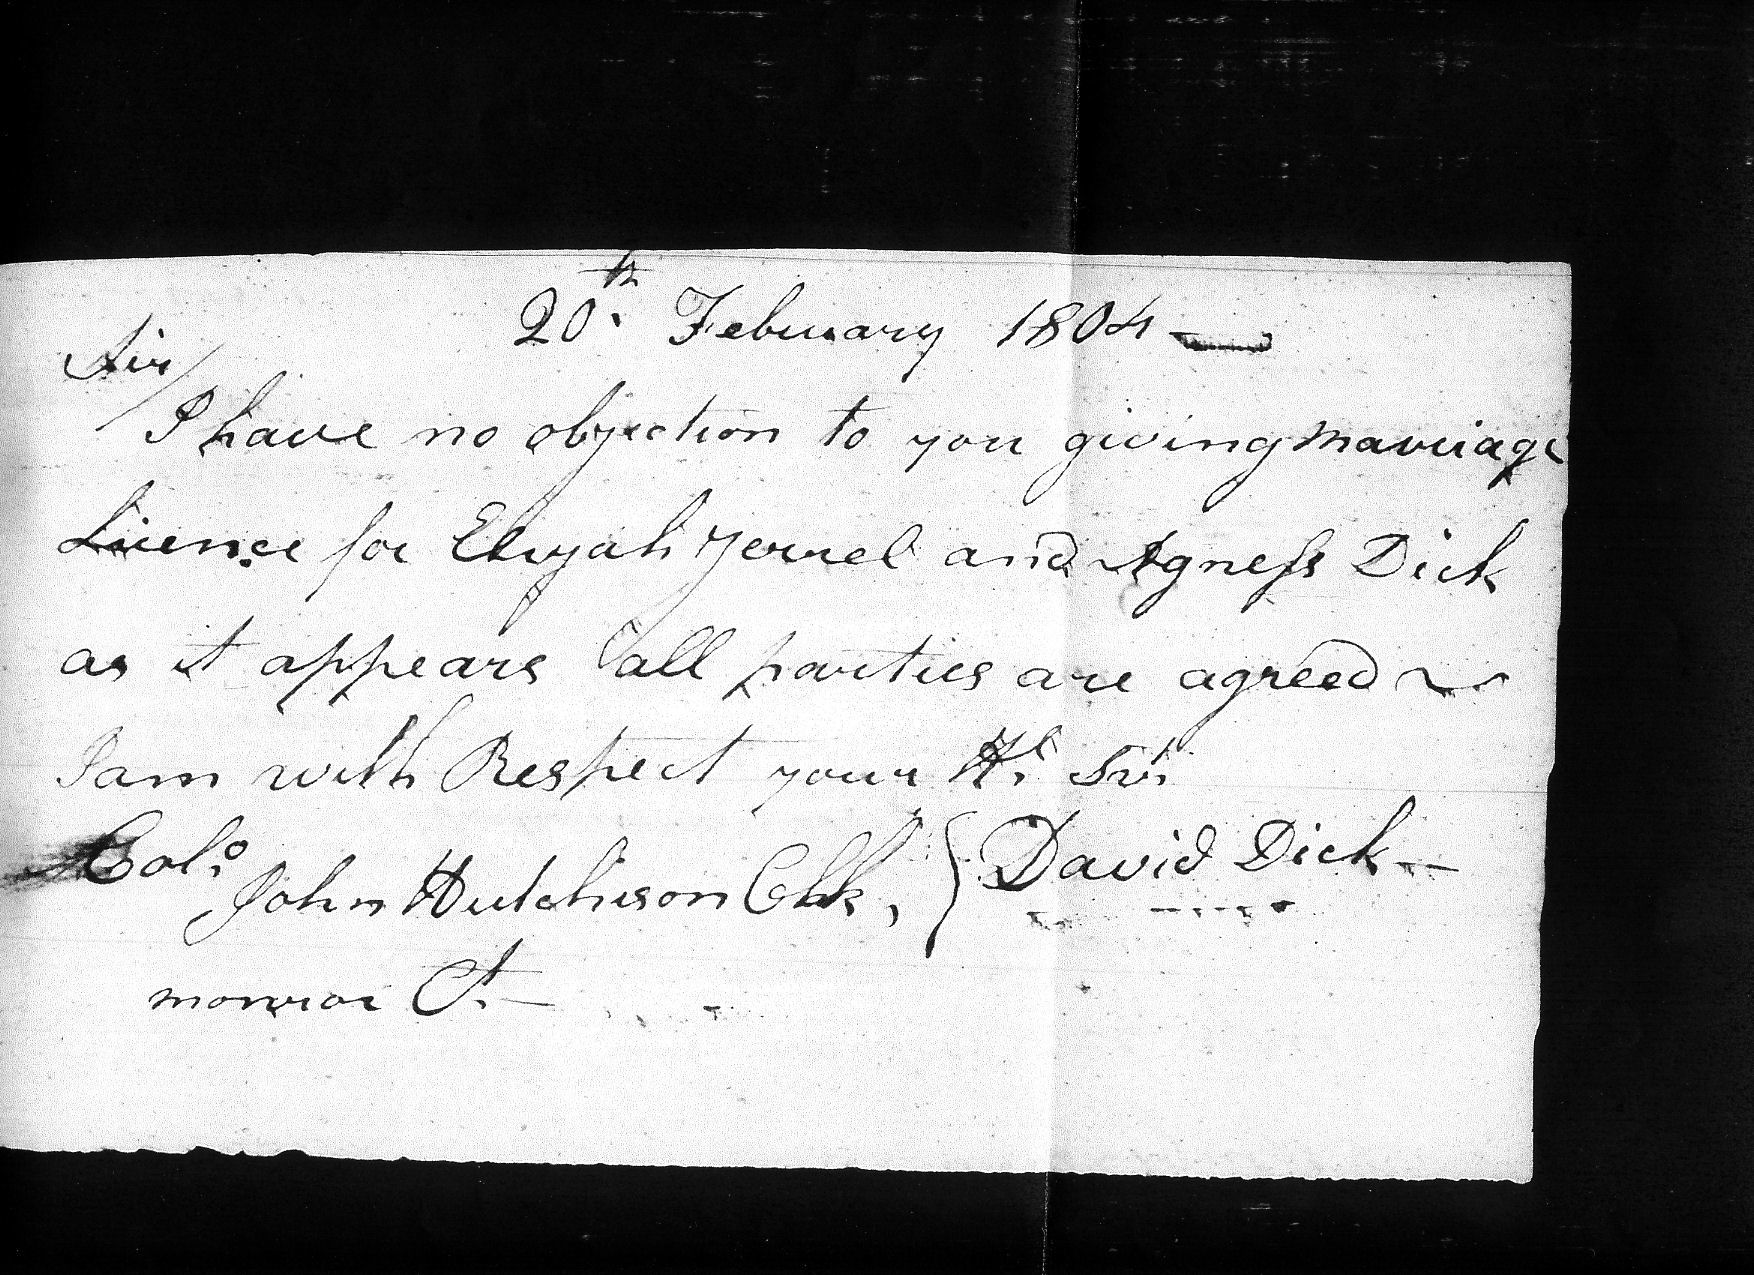 20th. Februrary 1804
Sir/
I have no objection to you giving marriage
Licence for Elijah Yerrel and Agness Dick
as it appears all parties are agreed
I am with Respect your Hl. Svt.
Colo. John Hutchison Clk, } David Dick
monroe Ct.